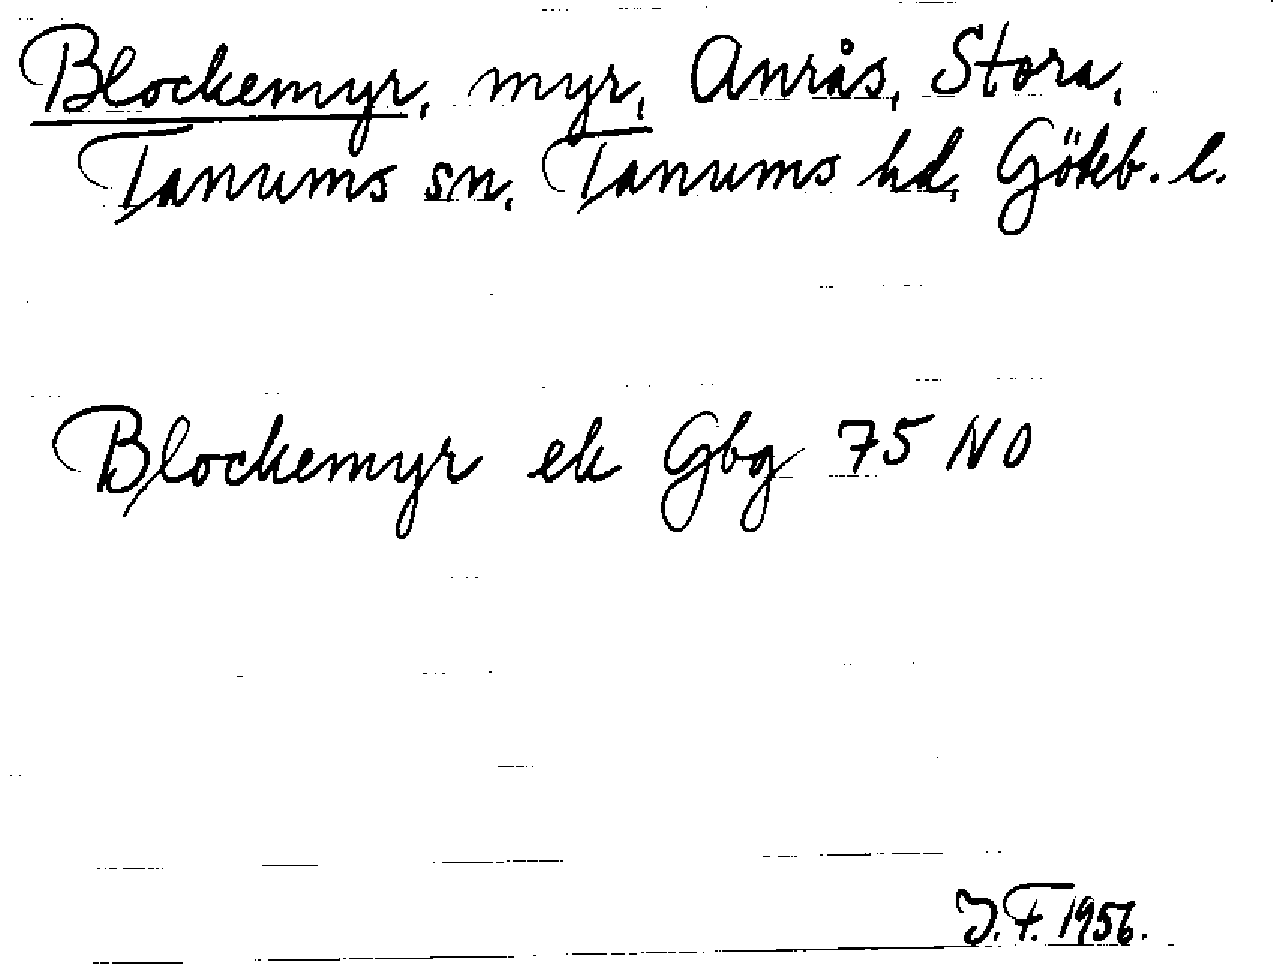 Blockemyr, myr, Anrås, Stora,
Tanums sn. Tanums hd, Göteb. l.
Blockemyr ek Gbg 75 NO
J.F. 1956.